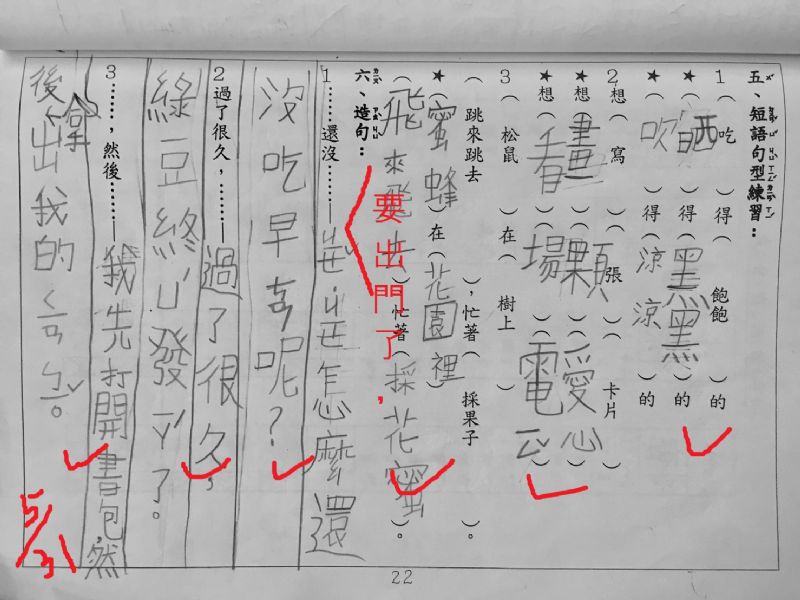 五、短語句型練習：
1（吃）得（飽飽）的
★（晒）得（黑黑）的
★（吹）得（涼涼）的
2想（寫）（張）（卡片）
★想（畫）（顆）（愛心）
★想（看）（場）（電）
3（松鼠）在（樹上）
（跳來跳去），忙著（採果子）。
★（蜜蜂）在（花園裡）
（飛來飛去），忙著（採花蜜）。
六、造句：
1……還沒……怎麼還
要出門了，
沒吃早呢？
2過了很久，……過了很久，
綠豆終發ㄧㄚˊ了。
3……，然後……我先打開書包，然
後拿出我的
5/31
22